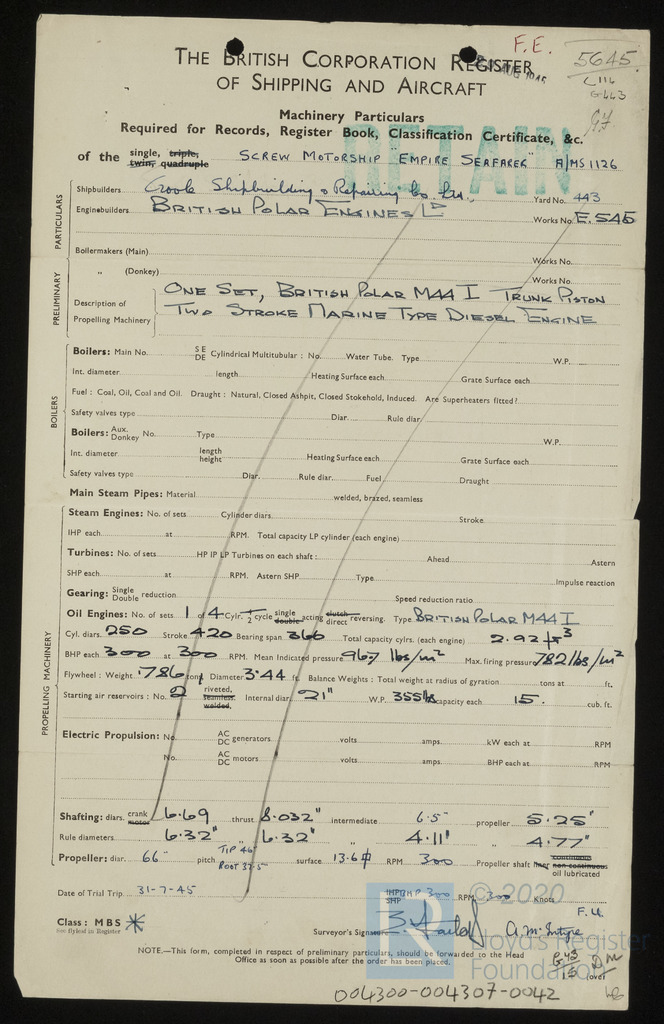 F.E.
5645
L 116
G443
THE BRITISH CORPORATION REGISTER
OF SHIPPING AND AIRCRAFT
RETAIN
Machinery Particulars
Required for Records, Register Book, Classification Certificate, &c.
of the single, triple, twin, quadruple SCREW MOTORSHIP "EMPIRE SEAFARER" A/MS 1126
PARTICULARS
Shipbuilders Goole Shipbuilding & Repairing Co Ltd., Yard No. 443
Enginebuilders BRITISH POLAR ENGINES LD Works No. E.545
Boilermakers (Main) Works No.
" (Donkey) Works No.
PRELIMINARY
Description of Propelling Machinery
ONE SET, BRITISH POLAR M44 I TRUNK PISTON
TWO STROKE MARINE TYPE DIESEL ENGINE
BOILERS
Boilers: Main No. SE DE Cylindrical Multitubular: No. Water Tube. Type W.P.
Int. diameter length Heating Surface each Grate Surface each
Fuel: Coal, Oil, Coal and Oil. Draught: Natural, Closed Ashpit, Closed Stokehold, Induced. Are Superheaters fitted?
Safety valves type Diar. Rule diar.
Boilers: Aux. Donkey No. Type W.P.
Int. diameter length height Heating Surface each Grate Surface each
Safety valves type Diar. Rule diar. Fuel Draught
Main Steam Pipes: Material welded, brazed, seamless
PROPELLING MACHINERY
Steam Engines: No. of sets Cylinder diars. Stroke
IHP each at RPM. Total capacity LP cylinder (each engine)
Turbines: No. of sets HP IP LP Turbines on each shaft: Ahead Astern
SHP each at RPM. Astern SHP Type Impulse reaction
Gearing: Single Double reduction Speed reduction ratio
Oil Engines: No. of sets 1 of 4 Cylr. 4 2 cycle single double acting clutch direct reversing. Type BRITISH POLAR M44 I
Cyl. diars. 250 Stroke 420 Bearing span 360 Total capacity cylrs. (each engine) 2.92 ft3
BHP each 300 at 300 RPM. Mean Indicated pressure 96.7 lbs/in2 Max. firing pressure 782 lbs/in2
Flywheel: Weight .786 tons Diameter 3.44 ft. Balance Weights: Total weight at radius of gyration tons at ft.
Starting air reservoirs: No. 2 riveted, seamless, welded, Internal diar. 21" W.P. 355 lbs capacity each 15. cub. ft.
Electric Propulsion: No. AC DC generators volts amps. kW each at RPM
No. AC DC motors volts amps. BHP each at RPM
Shafting: diars. crank motor 6.69 thrust 8.032" intermediate 6.5" propeller 5.25"
Rule diameters 6.32" 6.32" " 4.11" " 4.77"
Propeller: diar. 66" pitch TIP 46" ROOT 37.5" surface 13.6 RPM 300 Propeller shaft liner continuous non-continuous oil lubricated
Date of Trial Trip 31-7-45 IHP BHP SHP 300 RPM 300 Knots
F.U.
Class: MBS *
See Byelaw in Register
Surveyor's Signature A. McIntyre
NOTE.—This form, completed in respect of preliminary particulars, should be forwarded to the Head
Office as soon as possible after the order has been placed.
[over
© 2020
Lloyd's Register
Foundation
004300-004307-0042